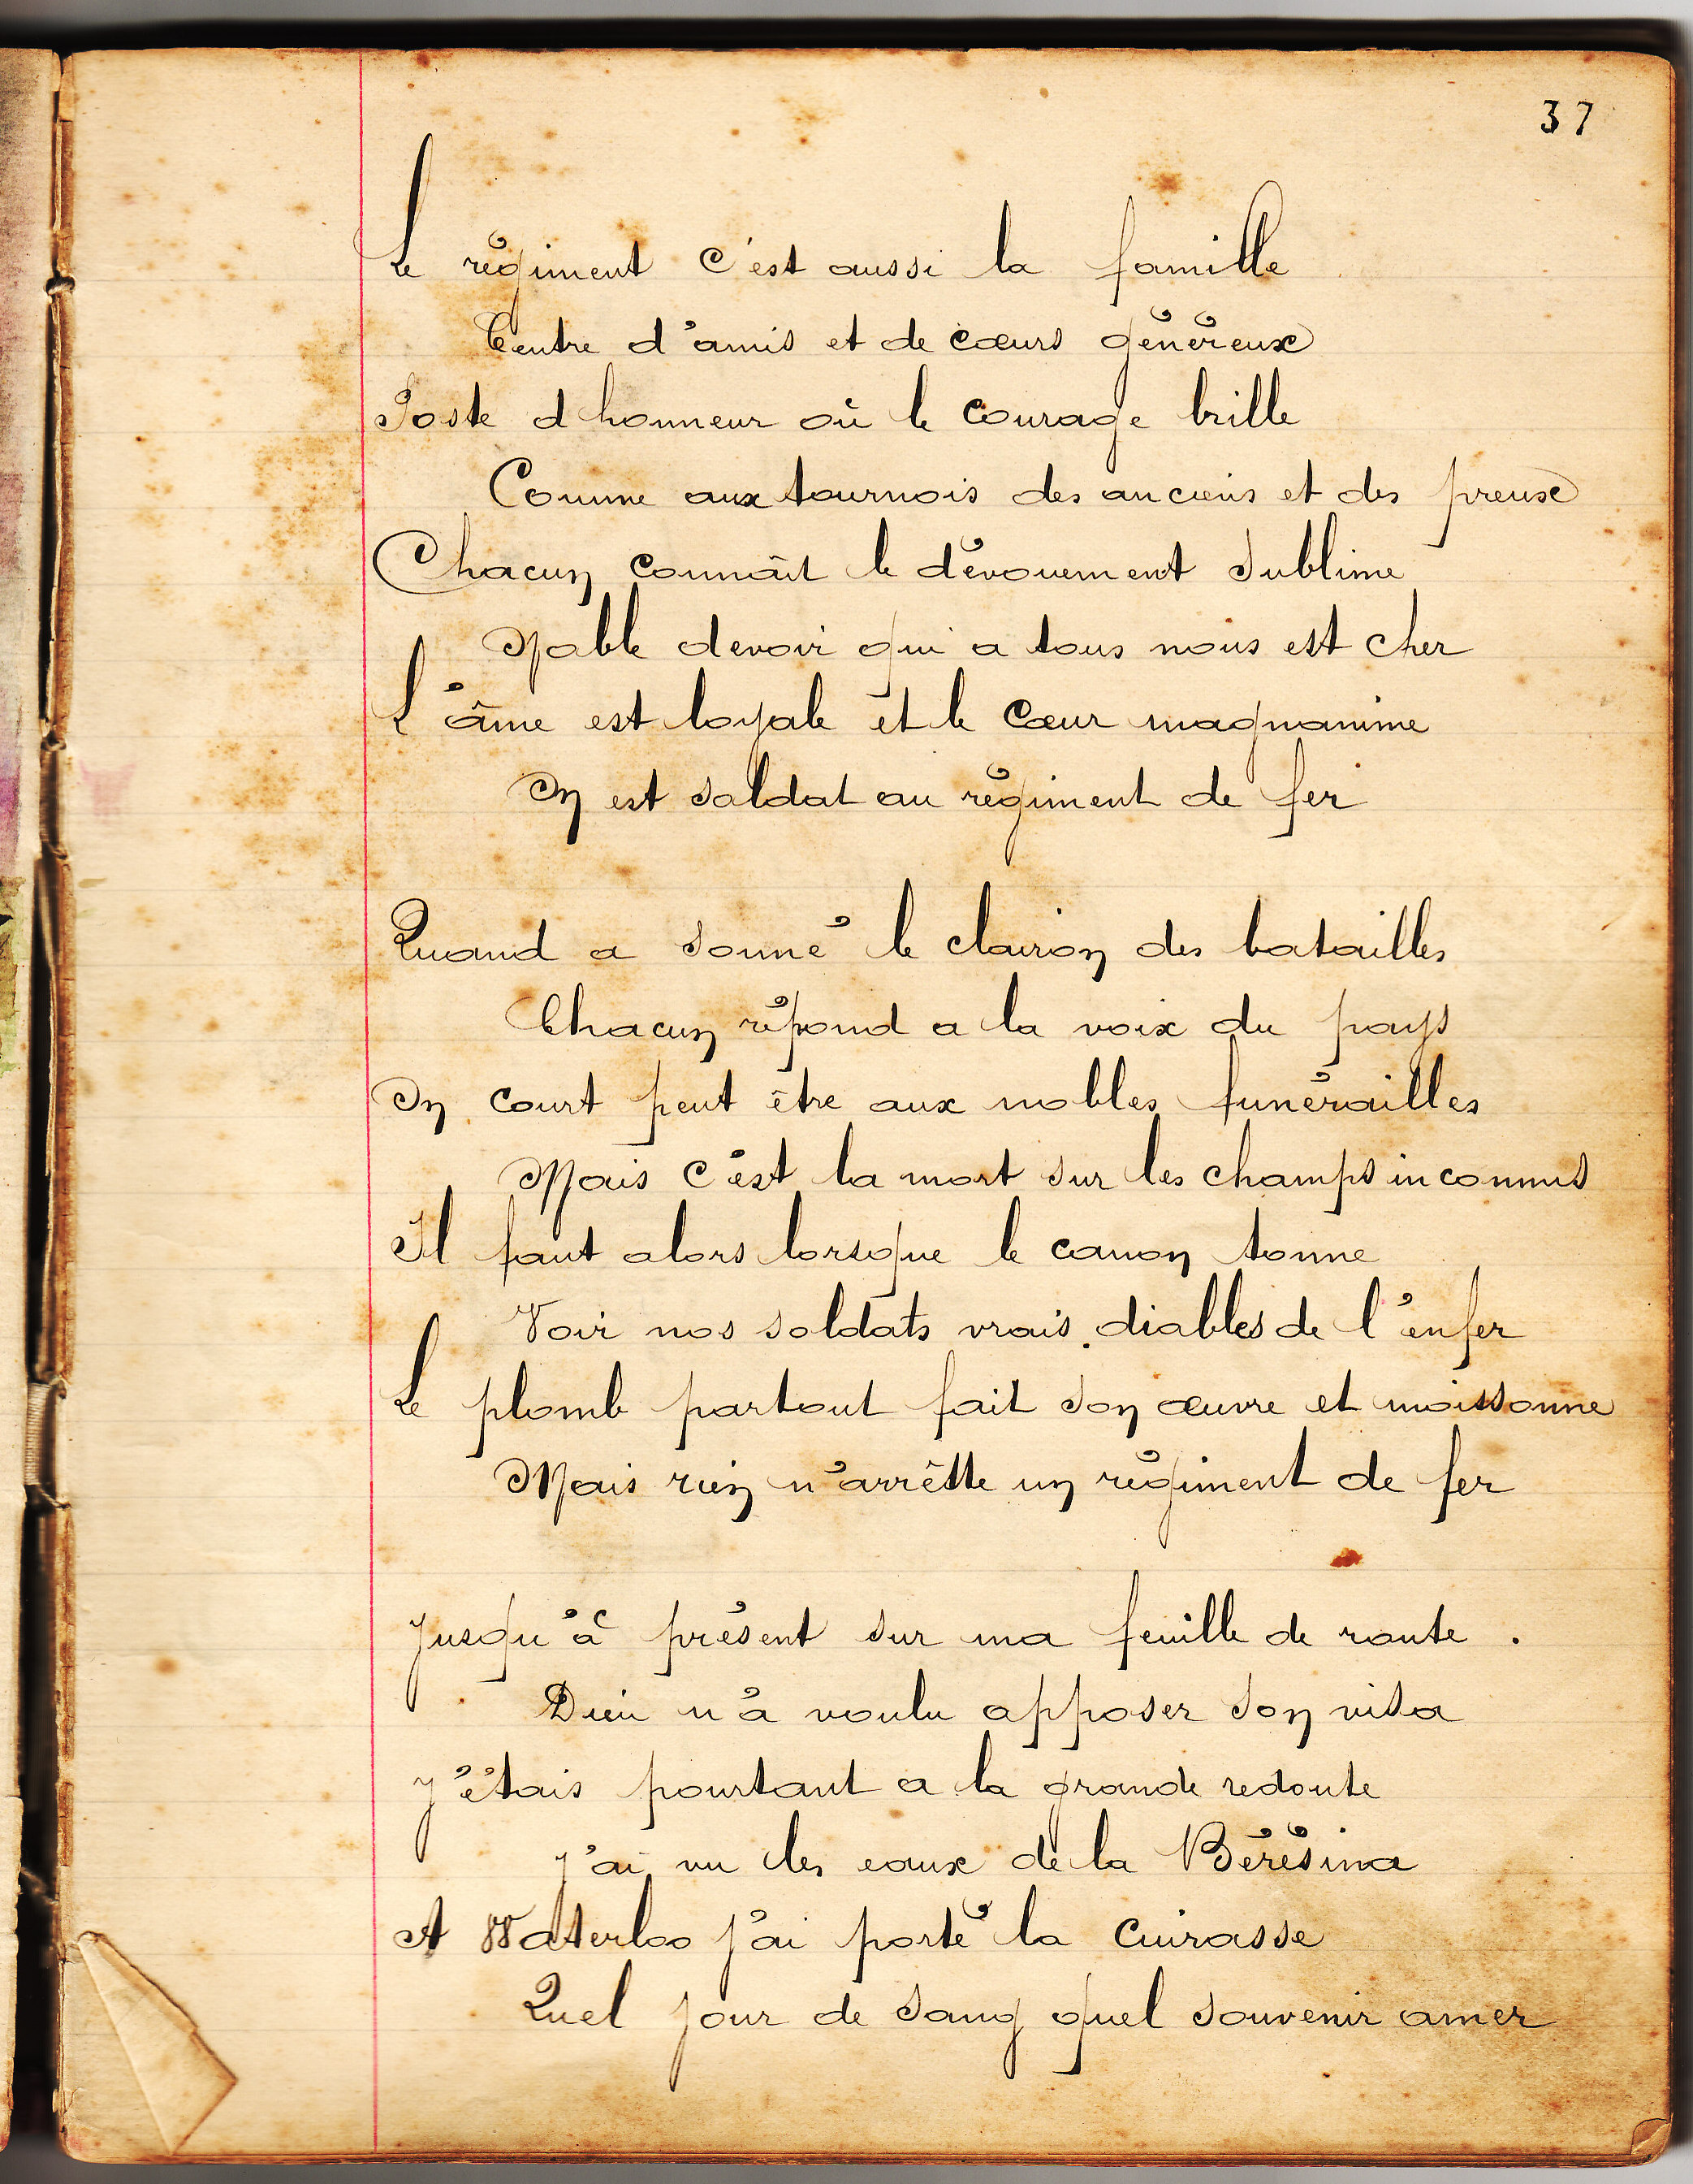 37
Le régiment c'est aussi la famille
Centre d'amis et de cœurs généreux
Poste d honneur où le courage brille
Comme aux tournois des anciens et des preux
Chacun connaît le dévouement sublime
Noble devoir qui a tous nous est cher
L'âme est loyale et le cœur magnanime
On est soldat au régiment de fer
Quand a sonné le clairon des batailles
Chacun répond a la voix du pays
On court peut être aux nobles funérailles
Mais c'est la mort sur les champs inconnus
Il faut alors lorsque le canon tonne
Voir nos soldats vrais diables de l'enfer
Le plomb partout fait son œuvre et moissonne
Mais rien n'arrêtte un régiment de fer
Jusqu'à présent sur ma feuille de route.
Dieu n'a voulu apposer son visa
J'étais pourtant a la grande redoute
J'ai vu les eaux de la Bérésina
A Waterloo j'ai porté la cuirasse
Quel jour de sang quel souvenir amer